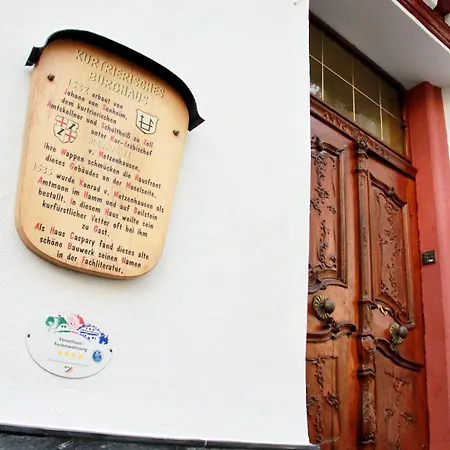 KURTRIERISCHES
BURGHAUS
1532 erbaut von
Johann von Senheim,
dem kurtrierischen
Amtskellner und Schultheiß zu Zell
unter Kur-Erzbischof
v. Metzenhausen,
Ihre Wappen schmücken die Hausfront
dieses Gebäudes an der Moselseite.
1535 wurde Konrad v. Metzenhausen als
Amtmann im Hamm und auf Beilstein
bestallt. In diesem Haus weilte sein
kurfürstlicher Vetter oft bei ihm
zu Gast.
Als Haus Caspary fand dieses alte
schöne Bauwerk seinen Namen
in der Fachliteratur.
Ferienhaus
Ferienwohnung